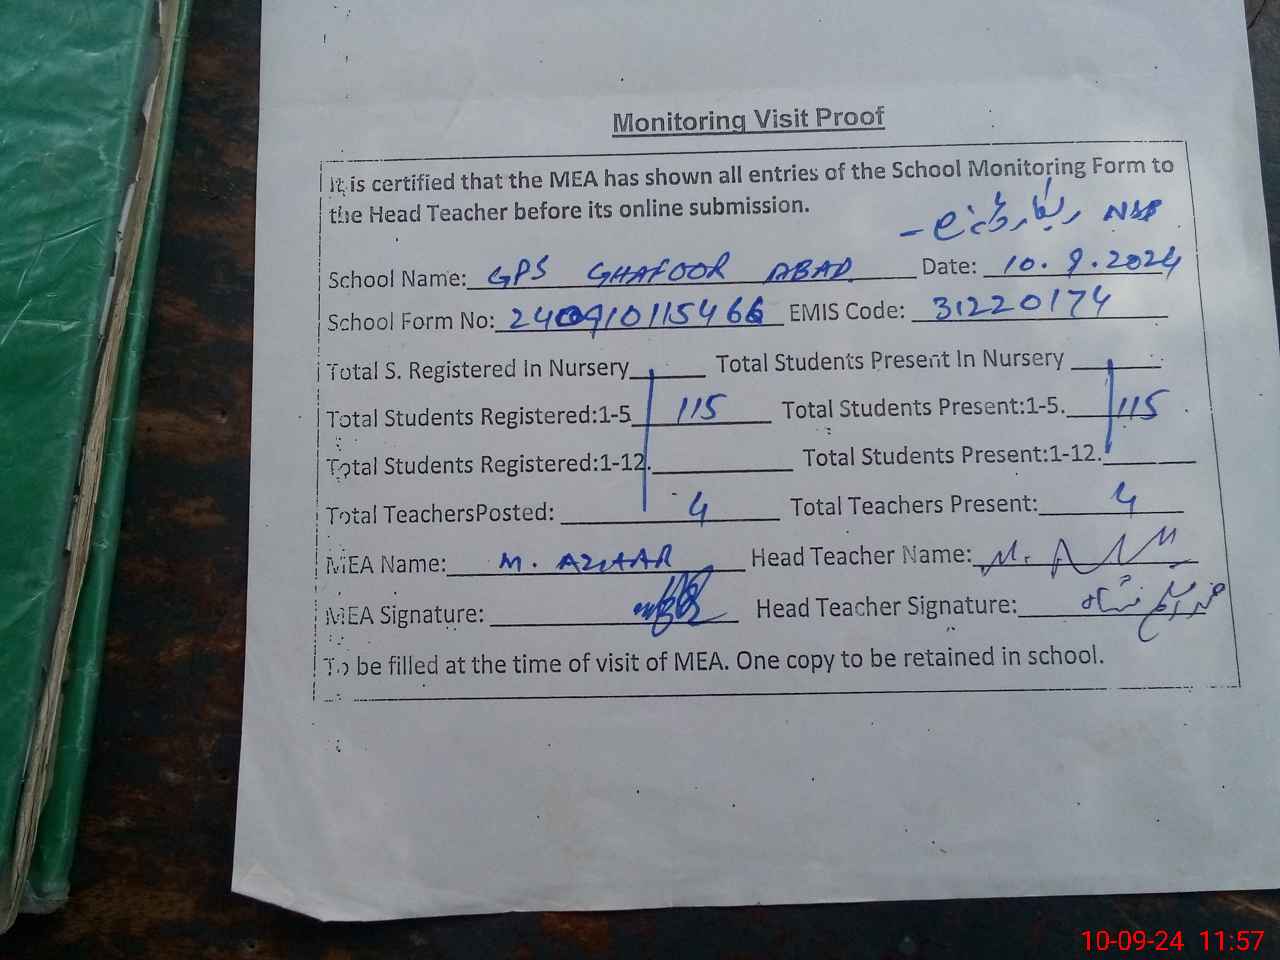 Monitoring Visit Proof
It is certified that the MEA has shown all entries of the School Monitoring Form to
the Head Teacher before its online submission.
NSB
School Name: GPS GHAFOOR ABAD Date: 10.9.2024
School Form No: 240910115466 EMIS Code: 31220174
Total S. Registered In Nursery Total Students Present In Nursery
Total Students Registered:1-5 115 Total Students Present:1-5. 115
Total Students Registered:1-12. Total Students Present:1-12.
Total TeachersPosted: 4 Total Teachers Present: 4
MEA Name: M. AZHAR Head Teacher Name: M.
MEA Signature: Head Teacher Signature:
To be filled at the time of visit of MEA. One copy to be retained in school.
10-09-24 11:57